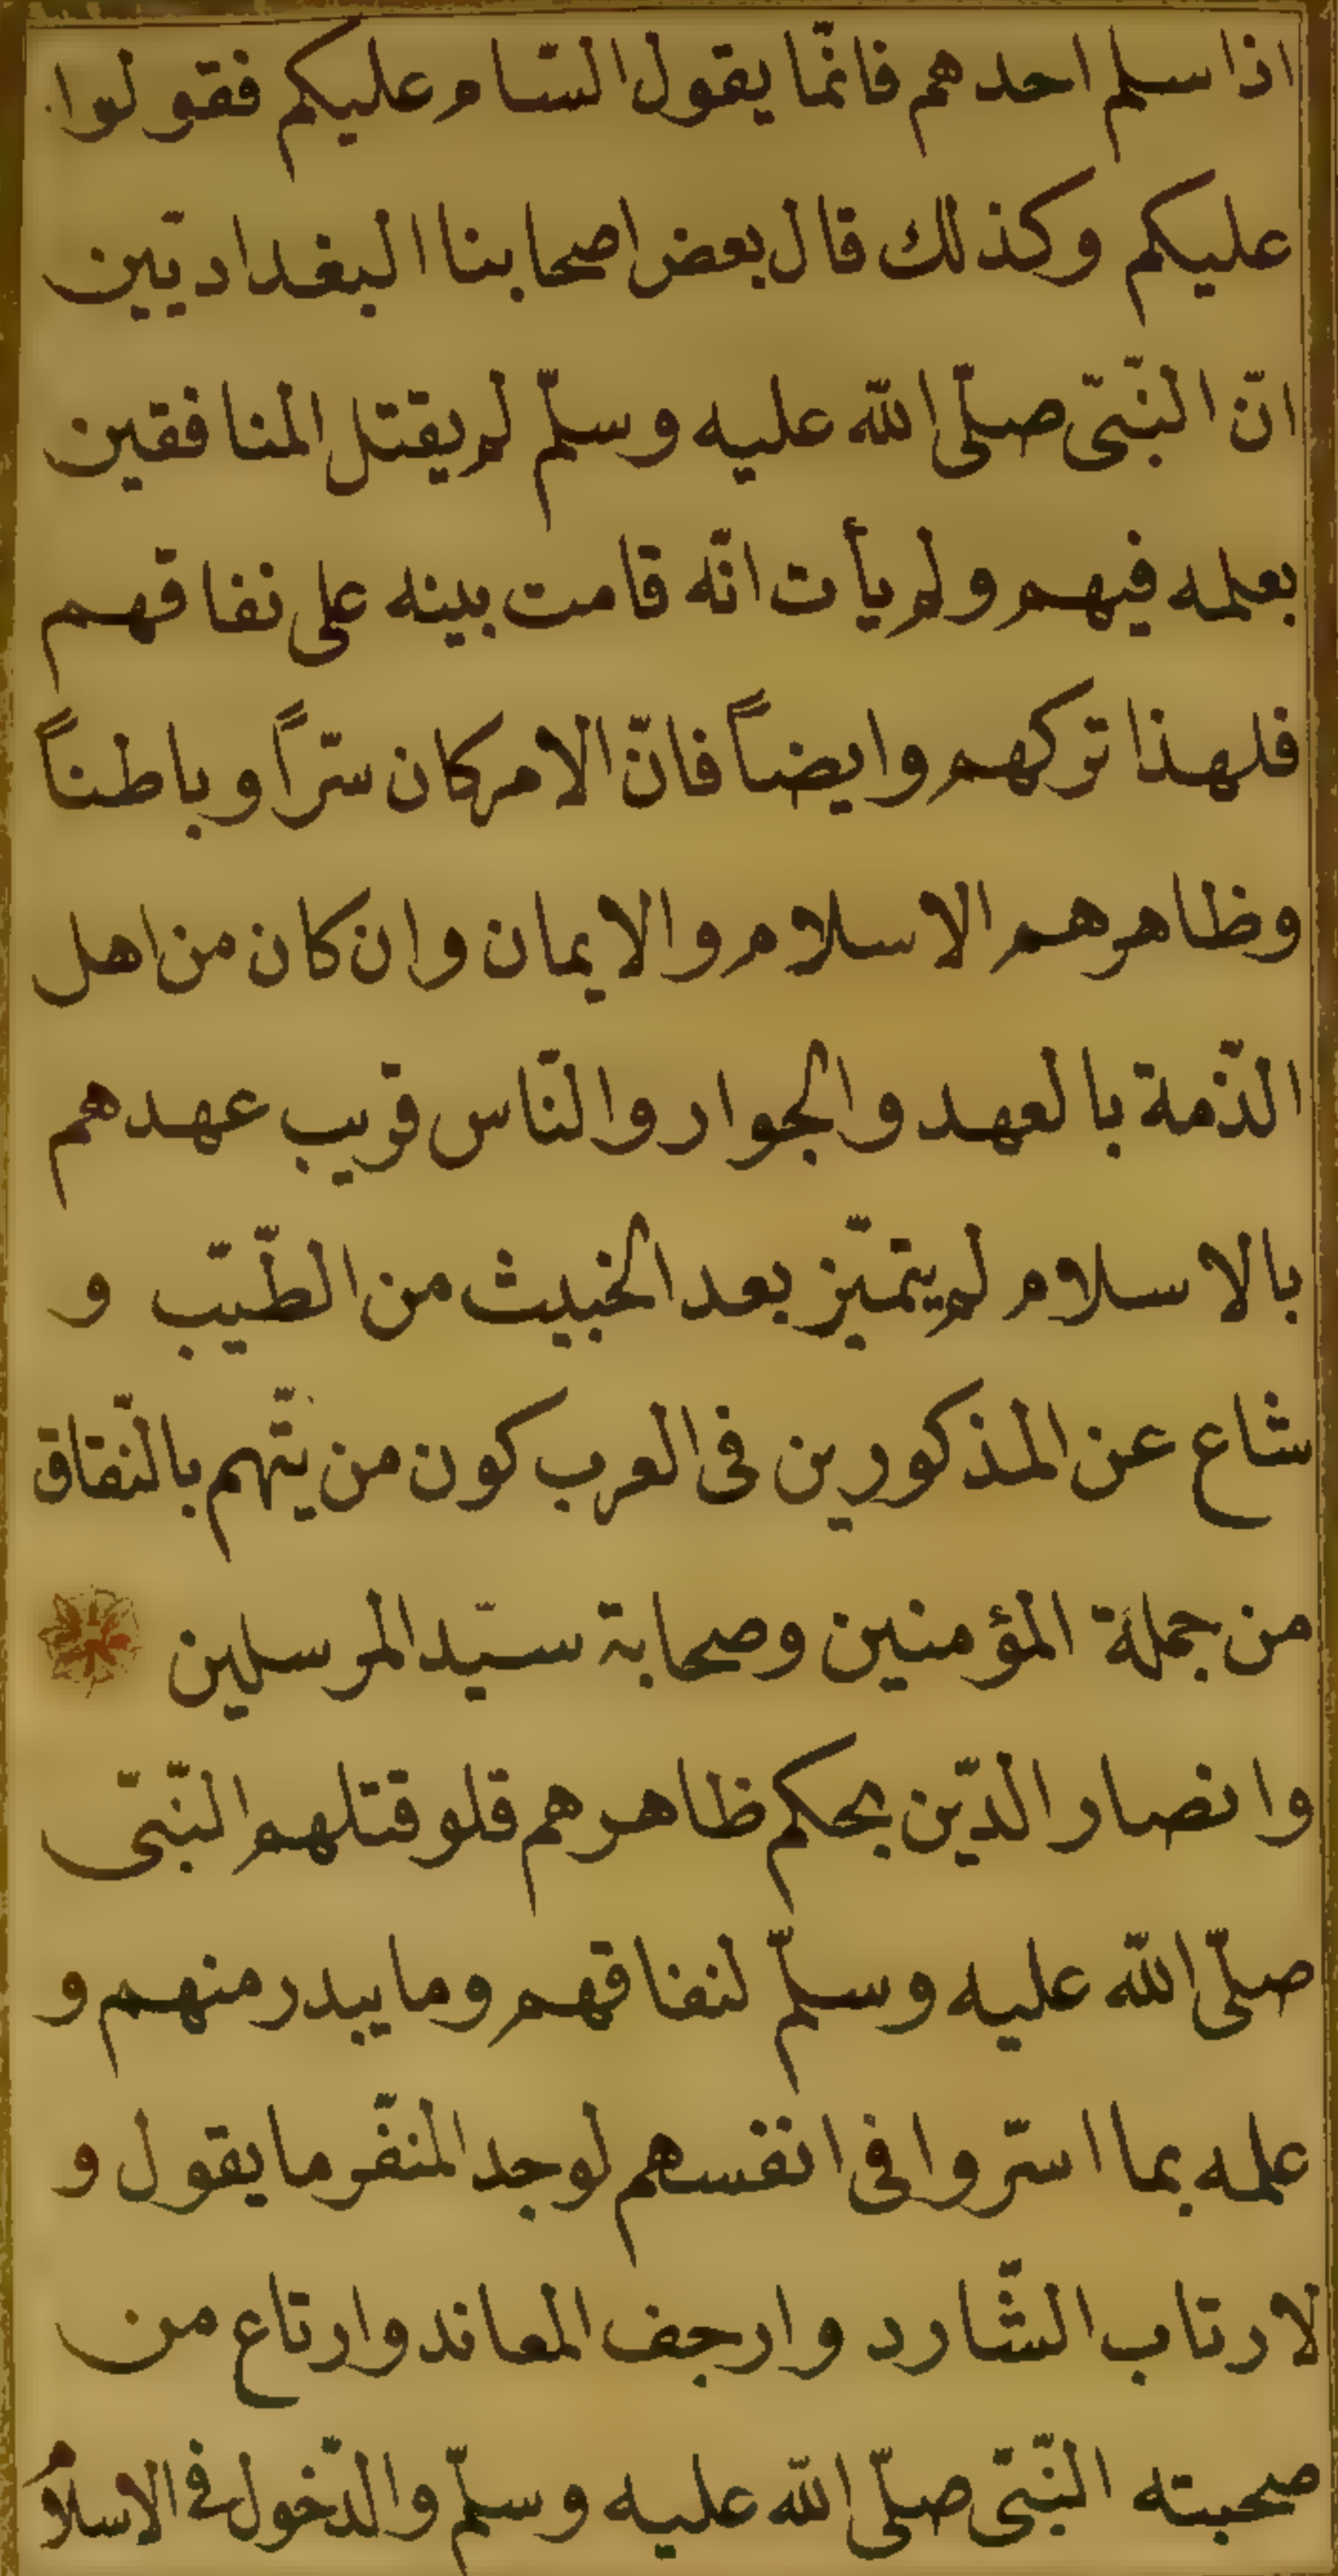 اذا سلم احدهم فانّما يقول السّام عليكم فقولوا
عليكم وكذلك قال بعض اصحابنا البغداديّين
انّ النّبىّ صلّى الله عليه وسلّم لم يقتل المنافقين
بعلمه فيهم ولم يأت انّه قامت بينه على نفاقهم
فلهذا تركهم وايضاً فانّ الامر كان سرّاً وباطناً
وظاهرهم الاسلام والايمان وان كان من اهل
الذّمة بالعهد والجوار والنّاس قريب عهدهم
بالاسلام لم يتميّز بعد الخبيث من الطّيّب و
شاع عن المذكورين فى العرب كون من يتّهم بالنّفاق
من جملة المؤمنين وصحابة سيّد المرسلين
وانصار الدّين بحكم ظاهرهم فلو قتلهم النّبىّ
صلّى الله عليه وسلّم لنفاقهم وما يبدر منهم و
علمه بما اسرّوا فى انفسهم لوجد المنفّر ما يقول و
لارتاب الشّارد وارجف المعاند وارتاع من
صحبته النّبىّ صلّى الله عليه وسلّم والدّخول فى الاسلام